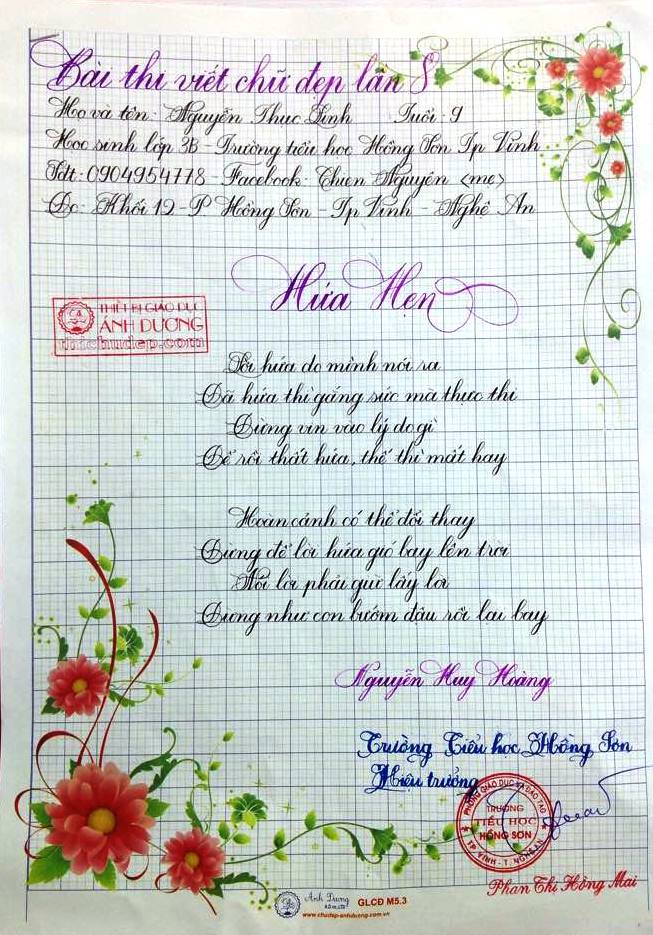 Bài thi viết chữ đẹp lần 8
Họ và tên: Nguyễn Thục Linh Tuổi: 9
Học sinh lớp 3B - Trường tiểu học Hồng Sơn Tp Vinh
Sđt: 0904954778 - Facebook Thien Nguyên <mẹ>
Đc: Khối 12 - P Hồng Sơn - Tp Vinh - Nghệ An
Hứa Hẹn
THIẾT BỊ GIÁO DỤC
ÁNH DƯƠNG
thichudep.com
Lời hứa do mình nói ra
Đã hứa thì gắng sức mà thực thi
Đừng vin vào lý do gì
Để rồi thất hứa, thế thì mất hay
Hoàn cảnh có thể đổi thay
Đừng để lời hứa gió bay lên trời
Nói lời phải giữ lấy lời
Đừng như con bướm đậu rồi lại bay
Nguyễn Huy Hoàng
Trường Tiểu học Hồng Sơn
Hiệu trưởng
PHÒNG GIÁO DỤC VÀ ĐÀO TẠO
TRƯỜNG
TIỂU HỌC
HỒNG SƠN
TP VINH - T. NGHỆ AN
Phan Thị Hồng Mai
Ánh Dương
GLCĐ M5.3
www.chudep-anhduong.com.vn